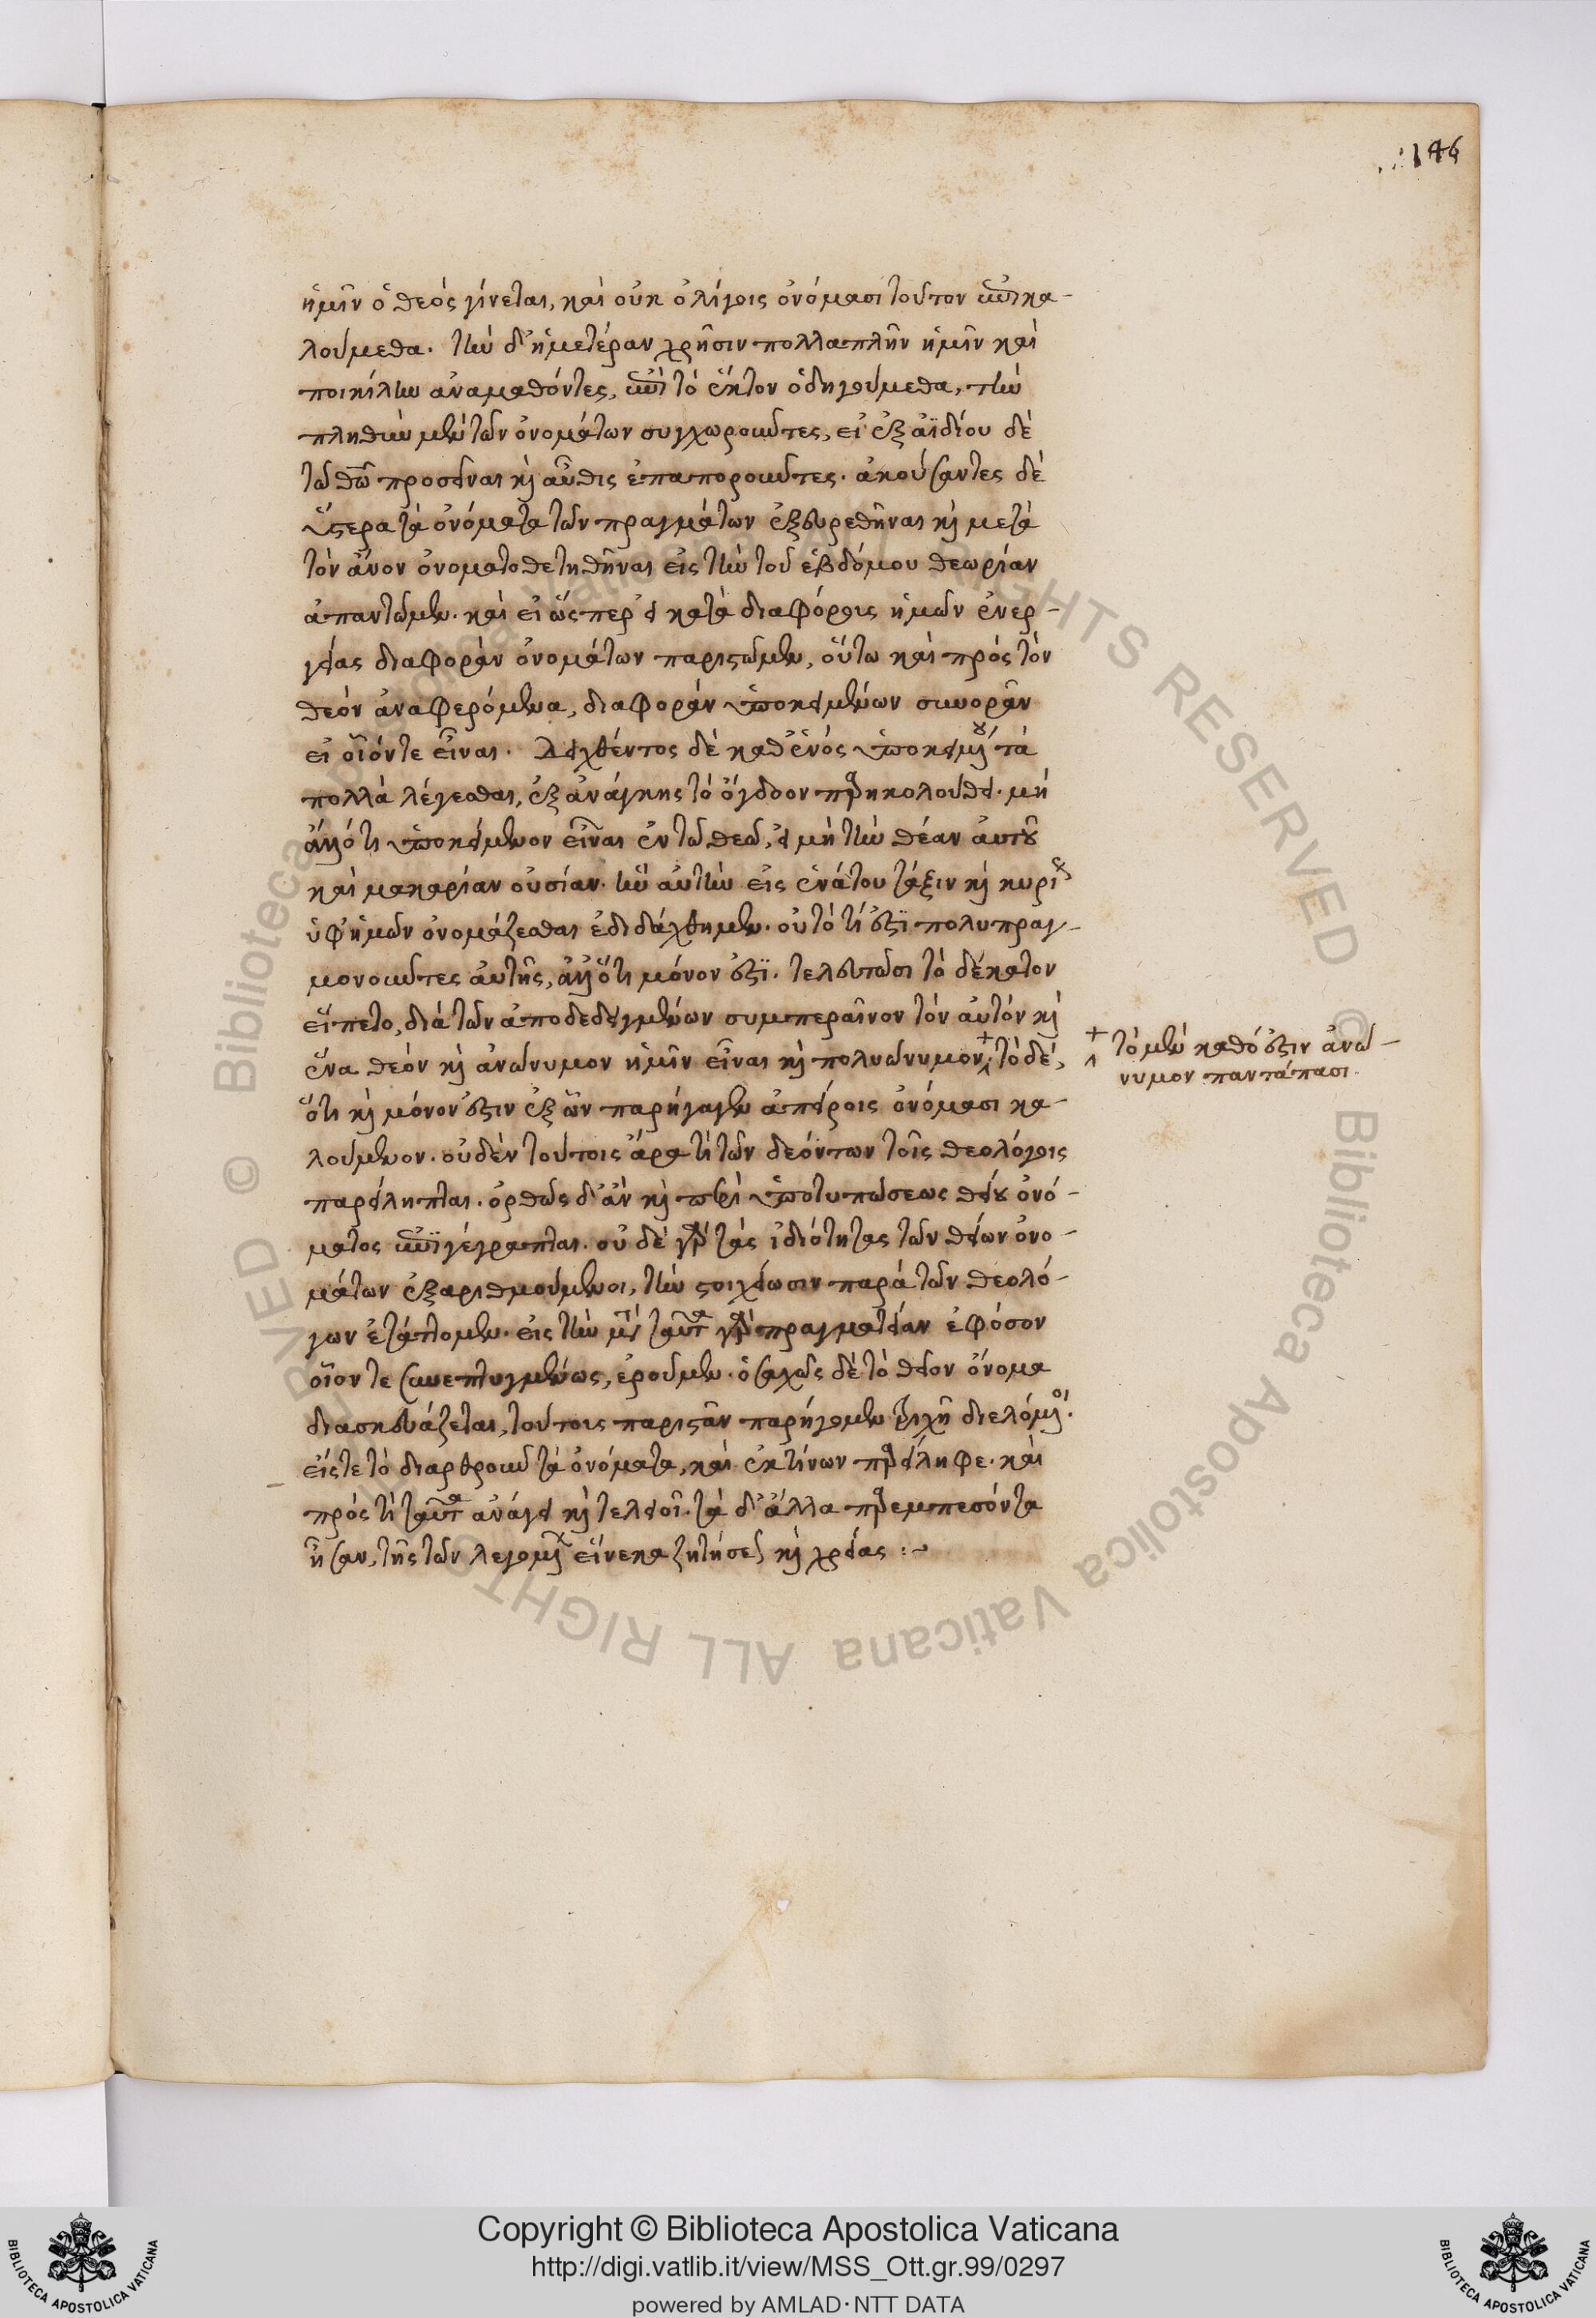 146
ἡμῖν ὁ θεὸς γίνεται, καὶ οὐκ ὀλίγοις ὀνόμασι τοῦτον ἐπικα-
λούμεθα. τὴν δ' ἡμετέραν χρῆσιν πολλαπλῆν ἡμῖν καὶ
ποικίλην ἀναμαθόντες, ἐπὶ τὸ ἕκτον ὁδηγούμεθα, τὴν
πληθὺν μὲν τῶν ὀνομάτων συγχωροῦντες, εἰ ἐξ ἀϊδίου δὲ
τῷ θῶ προσεῖναι κὶ αὖθις ἐπαποροῦντες. ἀκούσαντες δὲ
ὕστερα τὰ ὀνόματα τῶν πραγμάτων ἐξευρεθῆναι κὶ μετὰ
τὸν ἄνον ὀνοματοθετηθῆναι εἰς τὴν τοῦ ἑβδόμου θεωρίαν
ἀπαντῶμεν. καὶ εἰ ὥσπερ εἰ κατὰ διαφόρους ἡμῶν ἐνερ-
γείας διαφορὰν ὀνομάτων παριστῶμεν, οὕτω καὶ πρὸς τὸν
θεὸν ἀναφερόμενα, διαφορὰν ὑποκειμένων συνορᾶν
εἰ οἷόντε εἶναι. λειχθέντος δὲ καθ' ἑνὸς ὑποκειμου τὰ
πολλὰ λέγεσθαι, ἐξ ἀνάγκης τὸ ὄγδοον παρηκολούθει. μὴ
ἄλλότι ὑποκείμενον εἶναι ἐν τῷ θεῷ, εἰ μὴ τὴν θείαν αὐτοῦ
καὶ μακαρίαν οὐσίαν. ἣν αὐτὴν εἰς ἐνάτου τάξιν κὶ κυρι
ὑφ' ἡμῶν ὀνομάζεσθαι ἐδιδάχθημεν. οὐ τὸ τί ἐστὶ πολυπραγ-
μονοῦντες αὐτῆς, ἀλλ' ὅτι μόνον ἐστί. τελευτῶσι τὸ δέκατον
εἵπετο, διὰ τῶν ἀποδεδειγμένων συμπεραῖνον τὸν αὐτὸν κὶ
ἕνα θεὸν κὶ ἀνώνυμον ἡμῖν εἶναι κὶ πολυώνυμον + τὸ δὲ,
+ τὸ μὲν καθό ἐστιν ἀνώ-
νυμον παντάπασι.
ὅτι κὶ μόνον ἐστιν ἐξ ὧν παρήγαγεν ἀπείροις ὀνόμασι κα-
λούμενον. οὐδὲν τούτοις ἄρα τὶ τῶν δεόντων τοῖς θεολόγοις
παρείληπται. ὀρθῶς δ' ἂν κὶ περὶ ὑποτυπώσεως θείου ὀνό-
ματος ἐπιγέγραπται. οὐδὲ γὰρ τὰς ἰδιότητας τῶν θείων ὀνο-
μάτων ἐξαριθμούμενοι, τὴν στοιχείωσιν παρὰ τῶν θεολό-
γων ἐτάττομεν. εἰς τὴν μετὰ ταῦτα γὰρ πραγματείαν ἐφόσον
οἷον τε συνεπτυγμένως, ἐροῦμεν. ὁσαχῶς δὲ τὸ θεῖον ὄνομα
διασκευάζεται, τούτοις παριστᾶν παρήγομεν τριχῆ διελόμοι.
εἴς τε τὸ διαρθροῦν τὰ ὀνόματα, καὶ ἐκ τίνων παρείληφε. καὶ
πρὸς τὶ ταῦτα ἀνάγει κὶ τελειοῖ. τὰ δ' ἄλλα παρεμπεσόντα
ἦσαν, τῆς τῶν λεγομένων εἵνεκα ζητήσεως κὶ χρείας :~
Copyright © Biblioteca Apostolica Vaticana
http://digi.vatlib.it/view/MSS_Ott.gr.99/0297
powered by AMLAD·NTT DATA
BIBLIOTECA APOSTOLICA VATICANA
BIBLIOTECA APOSTOLICA VATICANA
© Biblioteca Apostolica Vaticana ALL RIGHTS RESERVED © Biblioteca Apostolica Vaticana ALL RIGHTS RESERVED